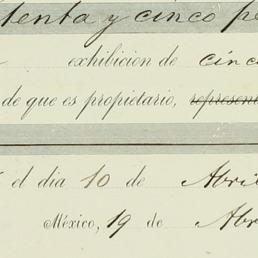 tenta y cinco pe
exhibicion de cinc
de que es propietario, represent
el dia 10 de Abri
México, 19 de Abr